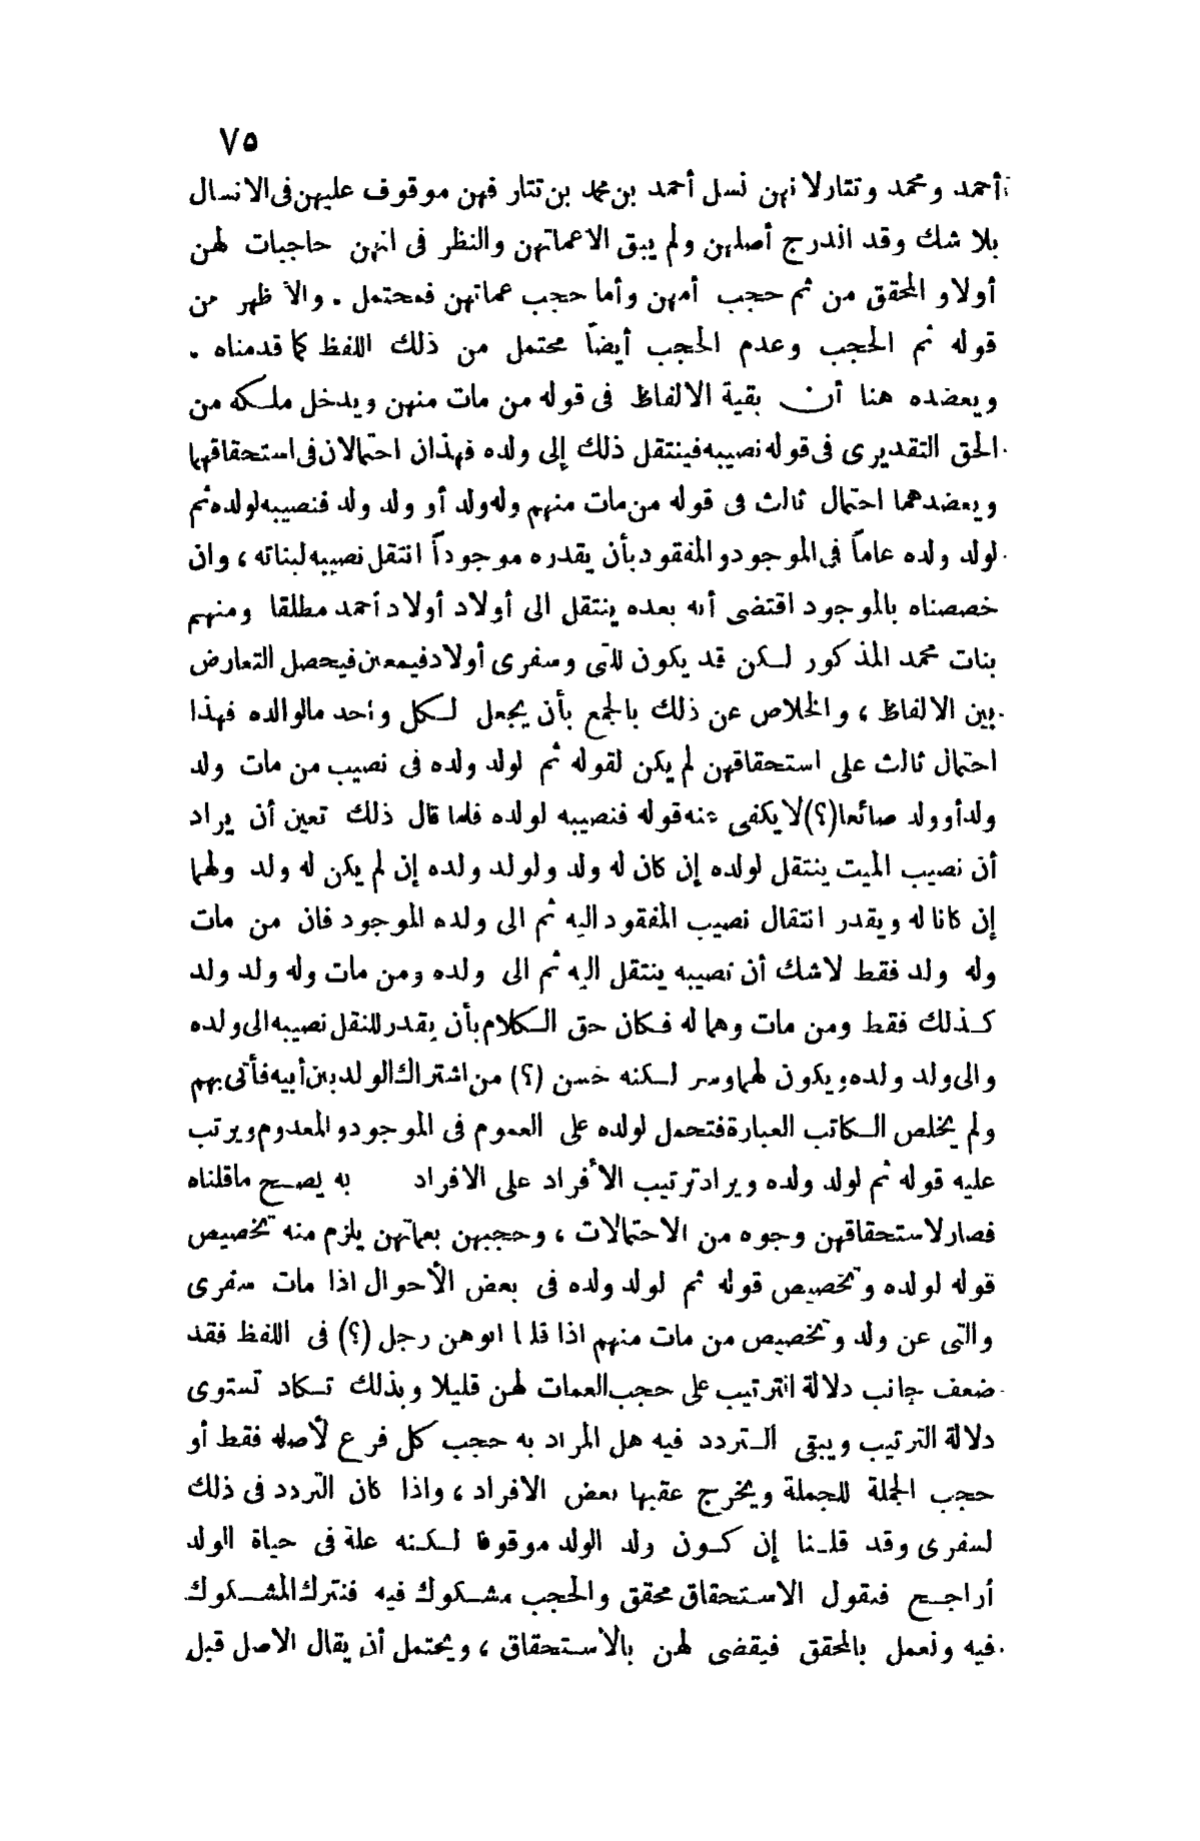 ٧٥
أحمد ومحمد وتتار لانهن نسل أحمد بن محمد بن تتار فهن موقوف عليهن فى الانسال
بلا شك وقد اندرج أصلهن ولم يبق الا عماتهن والنظر فى انهن حاجبات لهن
أولا والمحقق من ثم حجب أمهن وأما حجب عماتهن فمحتمل . والاظهر من
قوله ثم الحجب وعدم الحجب أيضاً محتمل من ذلك اللفظ كما قدمناه .
ويعضده هنا أن بقية الالفاظ فى قوله من مات منهن ويدخل ملكه من
الحق التقديرى فى قوله نصيبه فينتقل ذلك إلى ولده فهذان احتمالان فى استحقاقها
ويعضدهما احتمال ثالث فى قوله من مات منهم وله ولد أو ولد ولد فنصيبه لولده ثم
لولد ولده عاماً فى الموجود والمفقود بأن يقدره موجوداً انتقل نصيبه لبناته ، وان
خصصناه بالموجود اقتضى أنه بعده ينتقل الى أولاد أولاد أحمد مطلقا ومنهم
بنات محمد المذكور لكن قد يكون للتى وسفرى أولاد فيمعن فيحصل التعارض
بين الالفاظ ، والخلاص عن ذلك بالجمع بأن يجعل لكل واحد مالوالده فهذا
احتمال ثالث على استحقاقهن لم يكن لقوله ثم لولد ولده فى نصيب من مات ولد
ولد أو ولد صائعا (؟) لا يكفى عنه قوله فنصيبه لولده فلما قال ذلك تعين أن يراد
أن نصيب الميت ينتقل لولده إن كان له ولد ولولد ولده إن لم يكن له ولد ولهما
إن كانا له ويقدر انتقال نصيب المفقود اليه ثم الى ولده الموجود فان من مات
وله ولد فقط لاشك أن نصيبه ينتقل اليه ثم الى ولده ومن مات وله ولد ولد
كذلك فقط ومن مات وهما له فكان حق الكلام بأن يقدر للنقل نصيبه الى ولده
والى ولد ولده ويكون لهما لكنه خسن (؟) من اشتراك الولد بين أبيه فأتى بهم
ولم يخلص الكاتب العبارة فتحمل لولده على العموم فى الموجود والمعدوم ويرتب
عليه قوله ثم لولد ولده ويراد ترتيب الأفراد على الافراد به يصح ماقلناه
فصار لاستحقاقهن وجوه من الاحتمالات ، وحجبهن بعماتهن يلزم منه تخصيص
قوله لولده وتخصيص قوله ثم لولد ولده فى بعض الأحوال اذا مات سفرى
والتى عن ولد وتخصيص من مات منهم اذا قلنا ابوهن رجل (؟) فى اللفظ فقد
ضعف جانب دلالة الترتيب على حجب العمات لهن قليلا وبذلك تكاد تستوى
دلالة الترتيب ويبقى التردد فيه هل المراد به حجب كل فرع لأصله فقط أو
حجب الجملة للجملة ويخرج عقبها بعض الافراد ، واذا كان التردد فى ذلك
لسفرى وقد قلنا إن كون ولد الولد موقوفا لكنه علة فى حياة الولد
أراجح فنقول الاستحقاق محقق والحجب مشكوك فيه فنترك المشكوك
فيه ونعمل بالمحقق فيقضى لهن بالاستحقاق ، ويحتمل أن يقال الاصل قبل